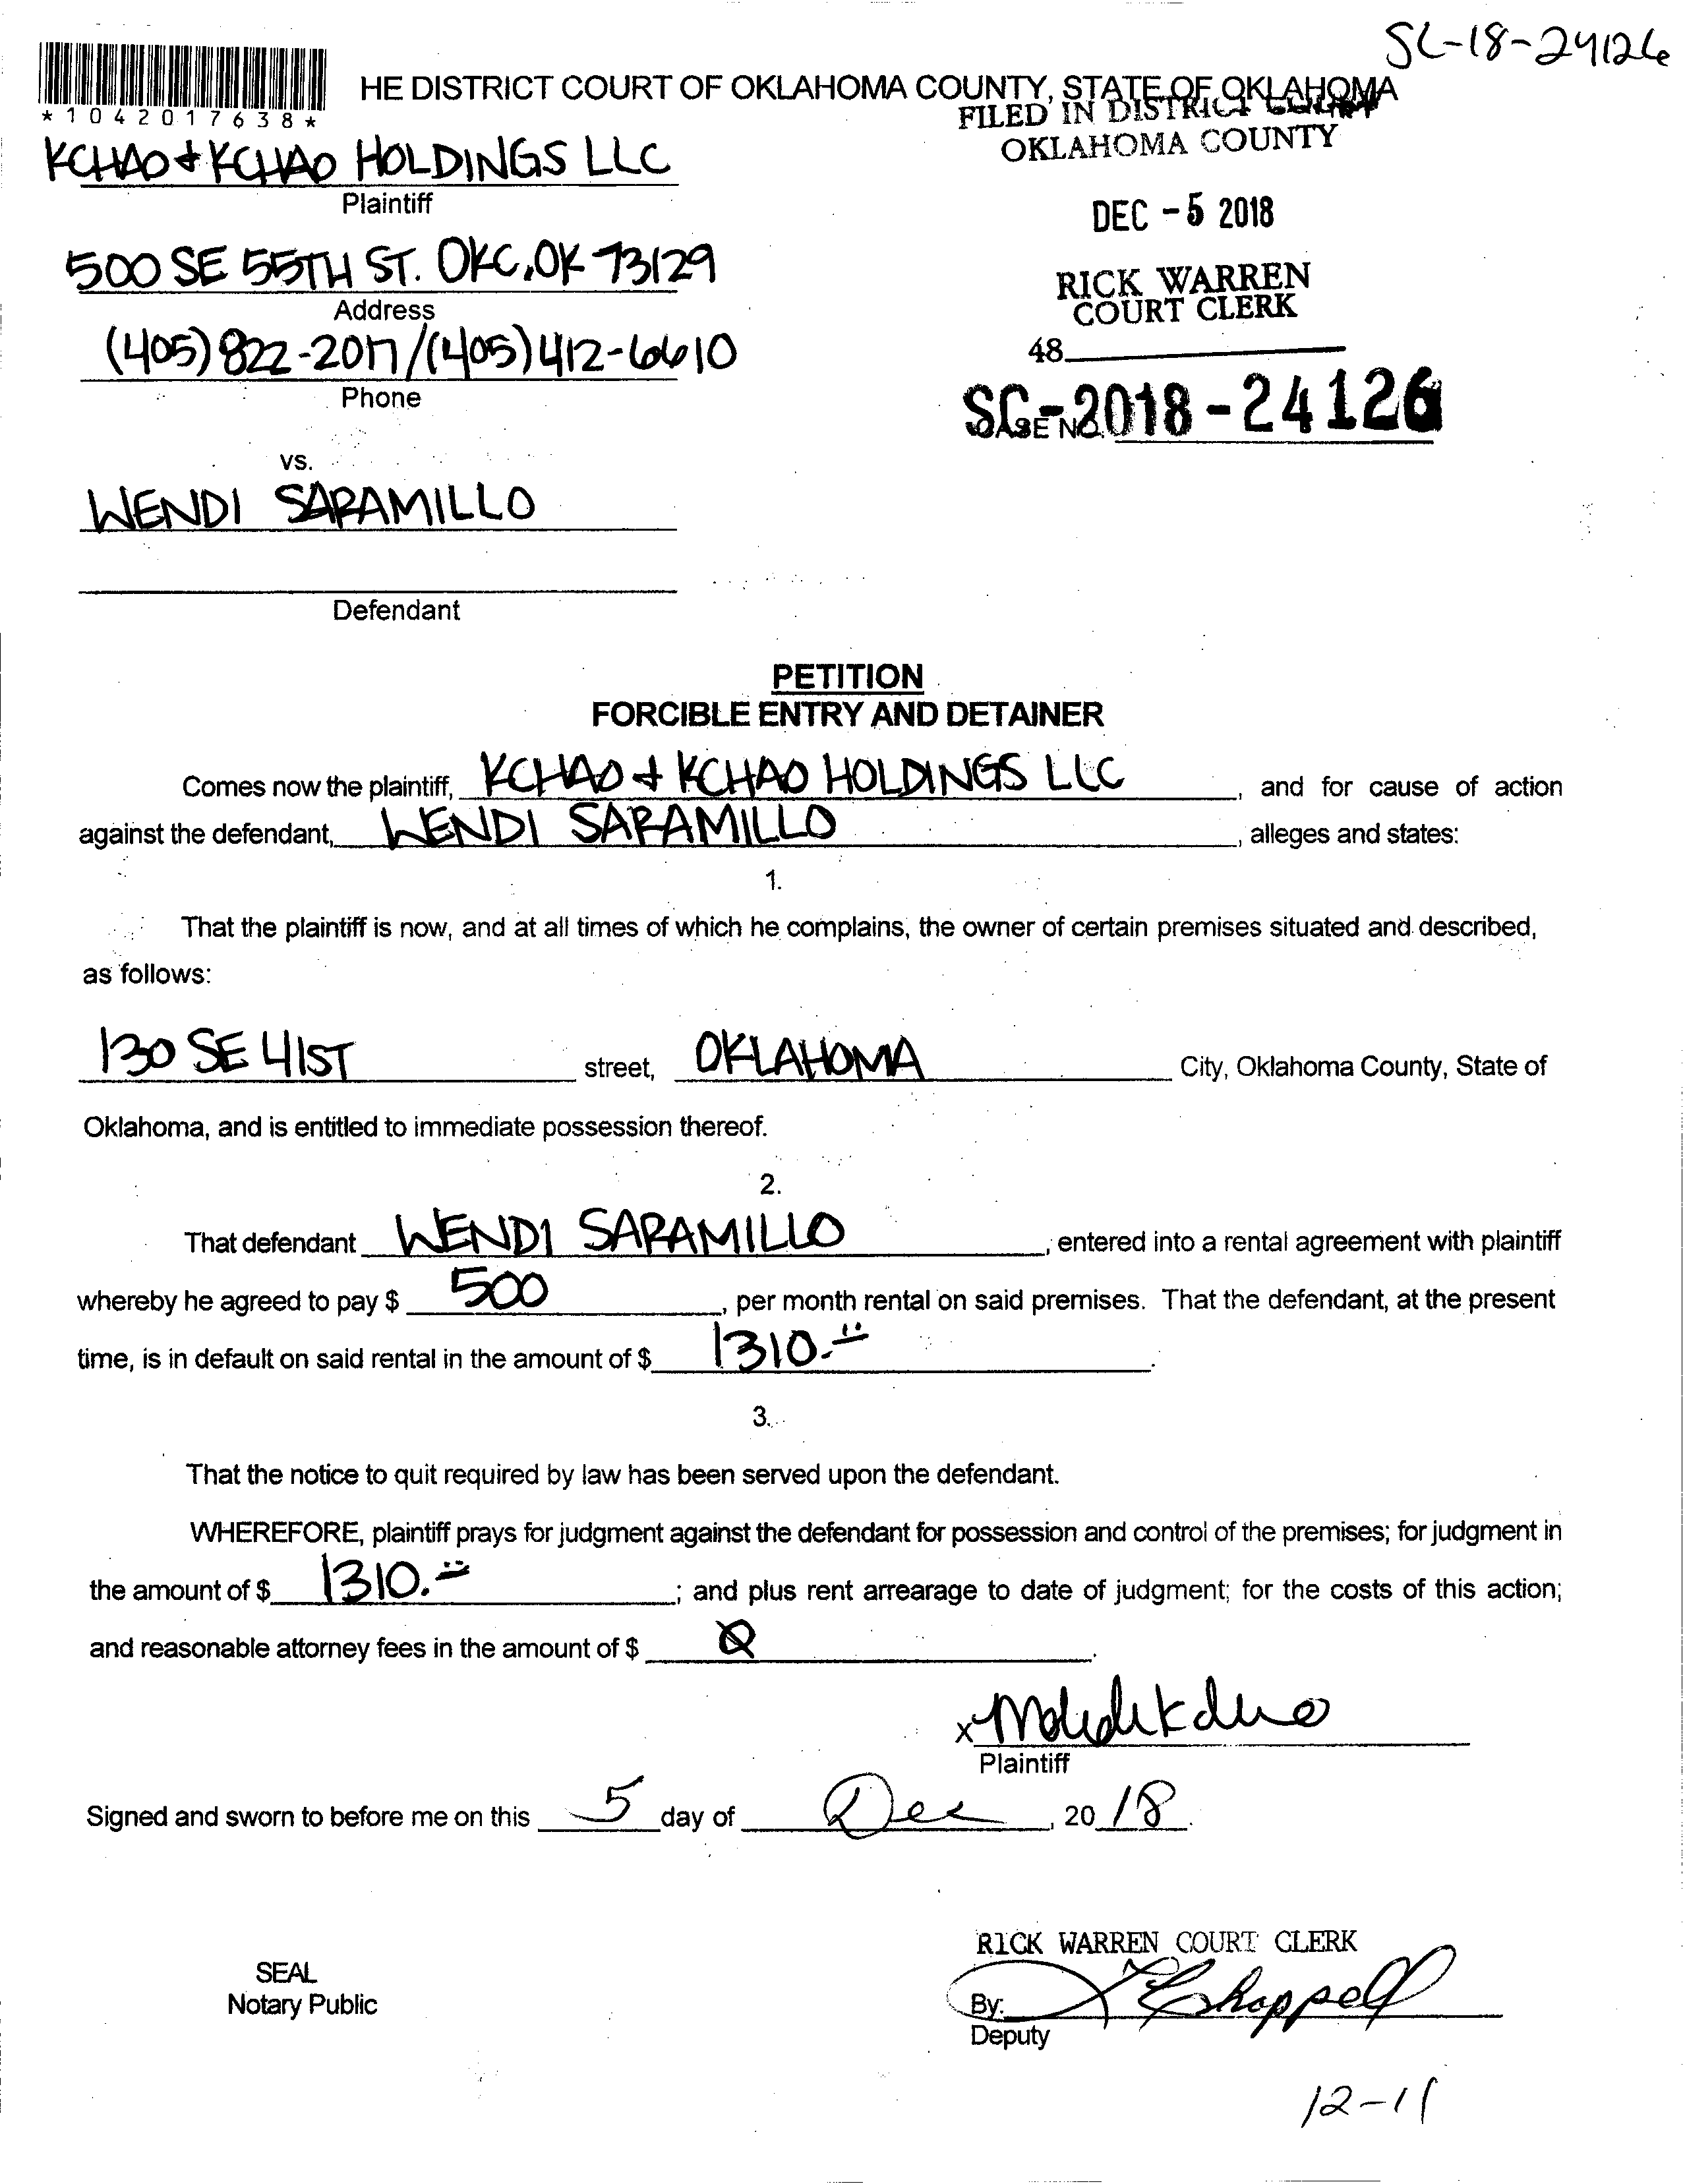 SC-18-24126
*1042017638*
HE DISTRICT COURT OF OKLAHOMA COUNTY, STATE OF OKLAHOMA
FILED IN DISTRICT COURT
OKLAHOMA COUNTY
KCHAO & KCHAO HOLDINGS LLC
Plaintiff
DEC -5 2018
500 SE 55TH ST. OKC, OK 73129
Address
RICK WARREN
COURT CLERK
(405) 822-2017/(405) 412-6610
Phone
48
SC-2018-24126
CASE NO.
vs.
WENDI SARAMILLO
Defendant
PETITION
FORCIBLE ENTRY AND DETAINER
Comes now the plaintiff, KCHAO & KCHAO HOLDINGS LLC, and for cause of action
against the defendant, WENDI SARAMILLO, alleges and states:
1.
That the plaintiff is now, and at all times of which he complains, the owner of certain premises situated and described,
as follows:
130 SE 41ST street, OKLAHOMA City, Oklahoma County, State of
Oklahoma, and is entitled to immediate possession thereof.
2.
That defendant WENDI SARAMILLO, entered into a rental agreement with plaintiff
whereby he agreed to pay $ 500, per month rental on said premises. That the defendant, at the present
time, is in default on said rental in the amount of $ 1310.-.
3.
That the notice to quit required by law has been served upon the defendant.
WHEREFORE, plaintiff prays for judgment against the defendant for possession and control of the premises; for judgment in
the amount of $ 1310.-; and plus rent arrearage to date of judgment; for the costs of this action;
and reasonable attorney fees in the amount of $ Ø.
x
Plaintiff
Signed and sworn to before me on this 5 day of Dec, 20 18.
RICK WARREN COURT CLERK
SEAL
Notary Public
By: Chappell
Deputy
12-11